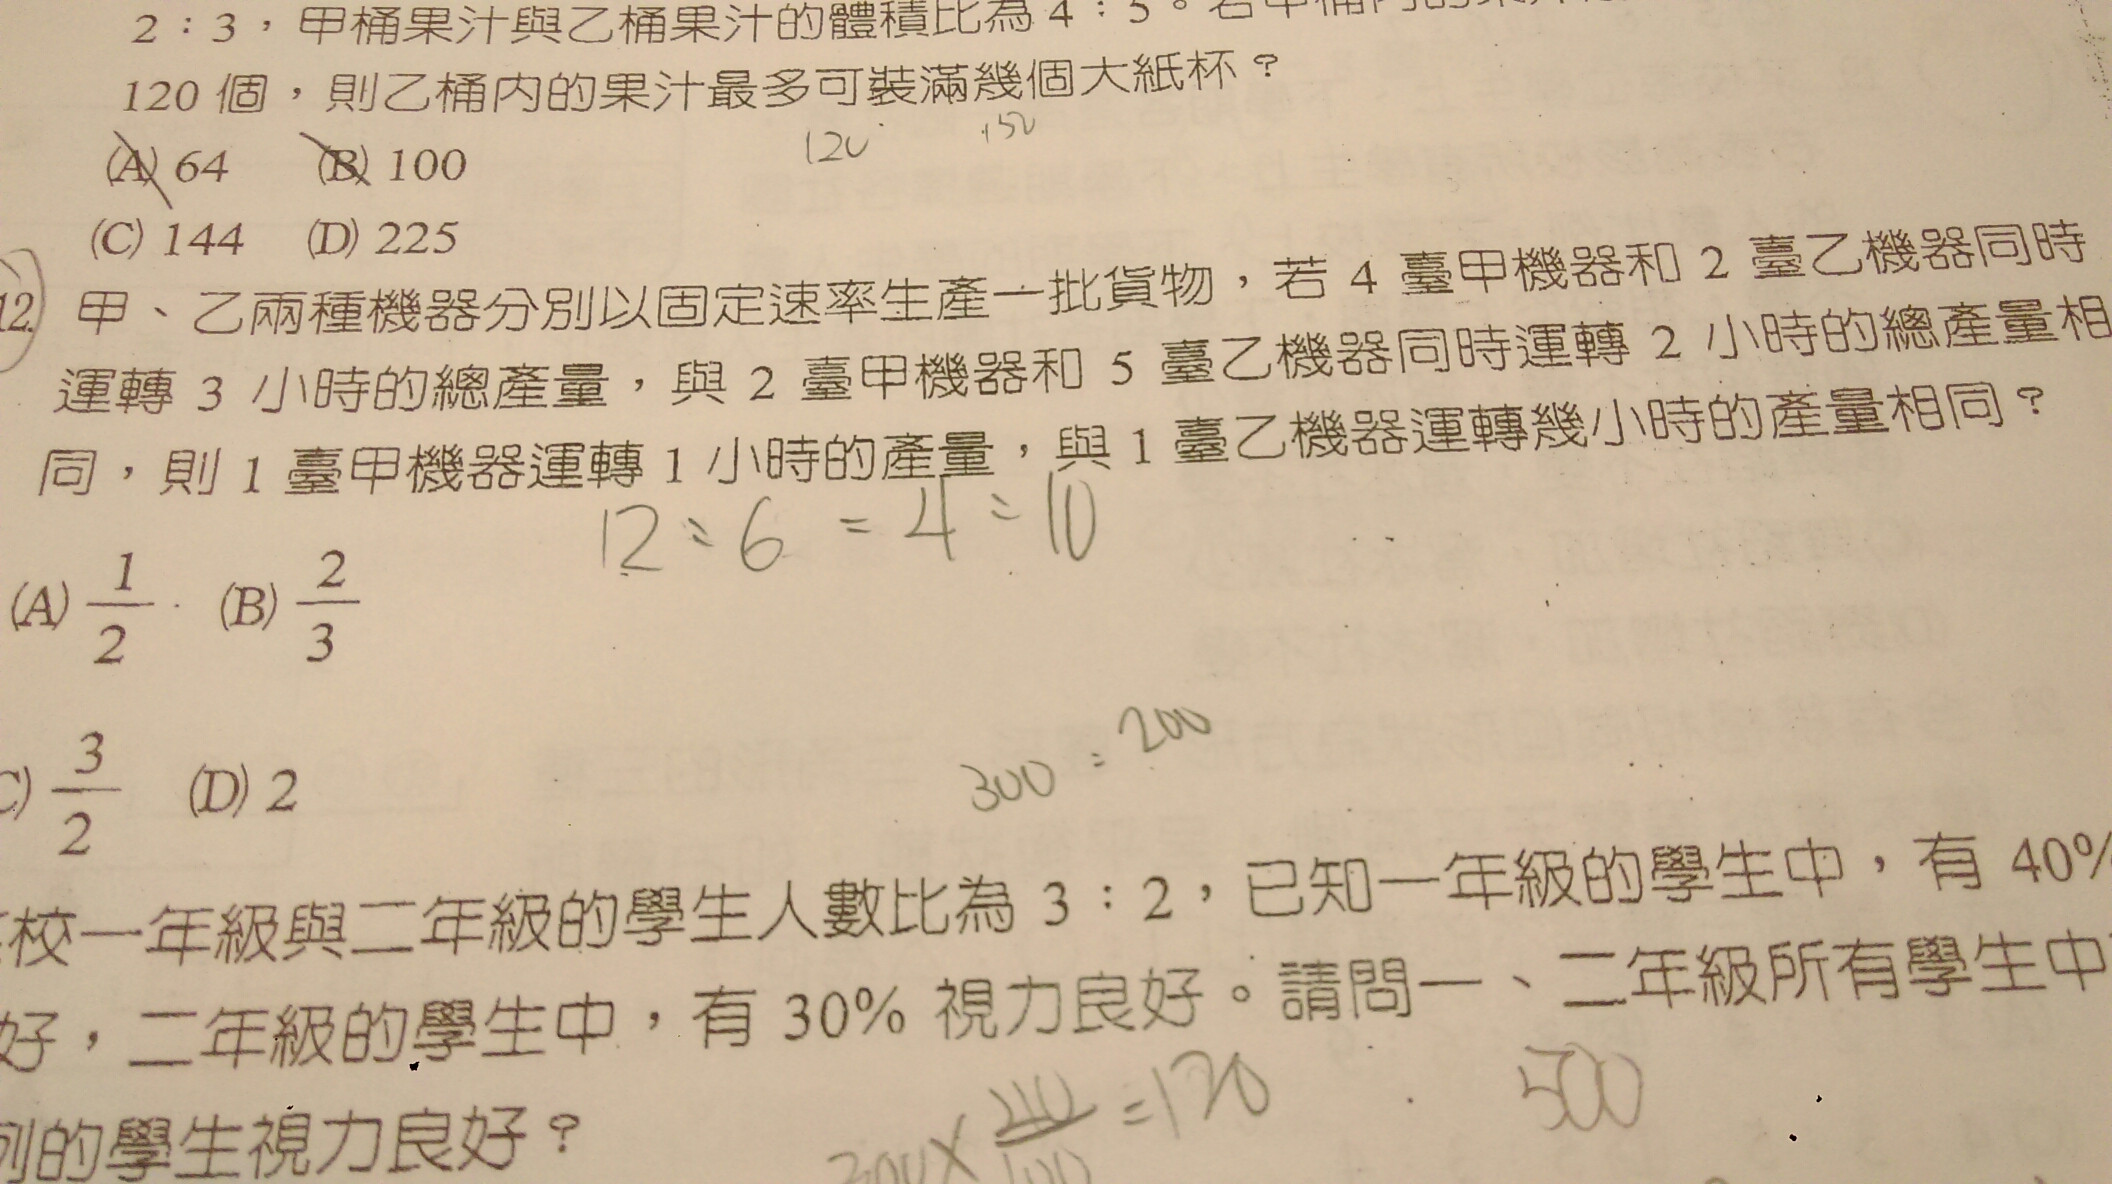 2：3，甲桶果汁與乙桶果汁的體積比為 4：5。若甲桶內的果汁
120 個，則乙桶內的果汁最多可裝滿幾個大紙杯？
120 150
(A) 64 (B) 100
(C) 144 (D) 225
12. 甲、乙兩種機器分別以固定速率生產一批貨物，若 4 臺甲機器和 2 臺乙機器同時
運轉 3 小時的總產量，與 2 臺甲機器和 5 臺乙機器同時運轉 2 小時的總產量相
同，則 1 臺甲機器運轉 1 小時的產量，與 1 臺乙機器運轉幾小時的產量相同？
12：6 = 4：10
(A) 1/2 (B) 2/3
300：200
C) 3/2 (D) 2
校一年級與二年級的學生人數比為 3：2，已知一年級的學生中，有 40%
好，二年級的學生中，有 30% 視力良好。請問一、二年級所有學生中
500
列的學生視力良好？
300× 40/100 =120